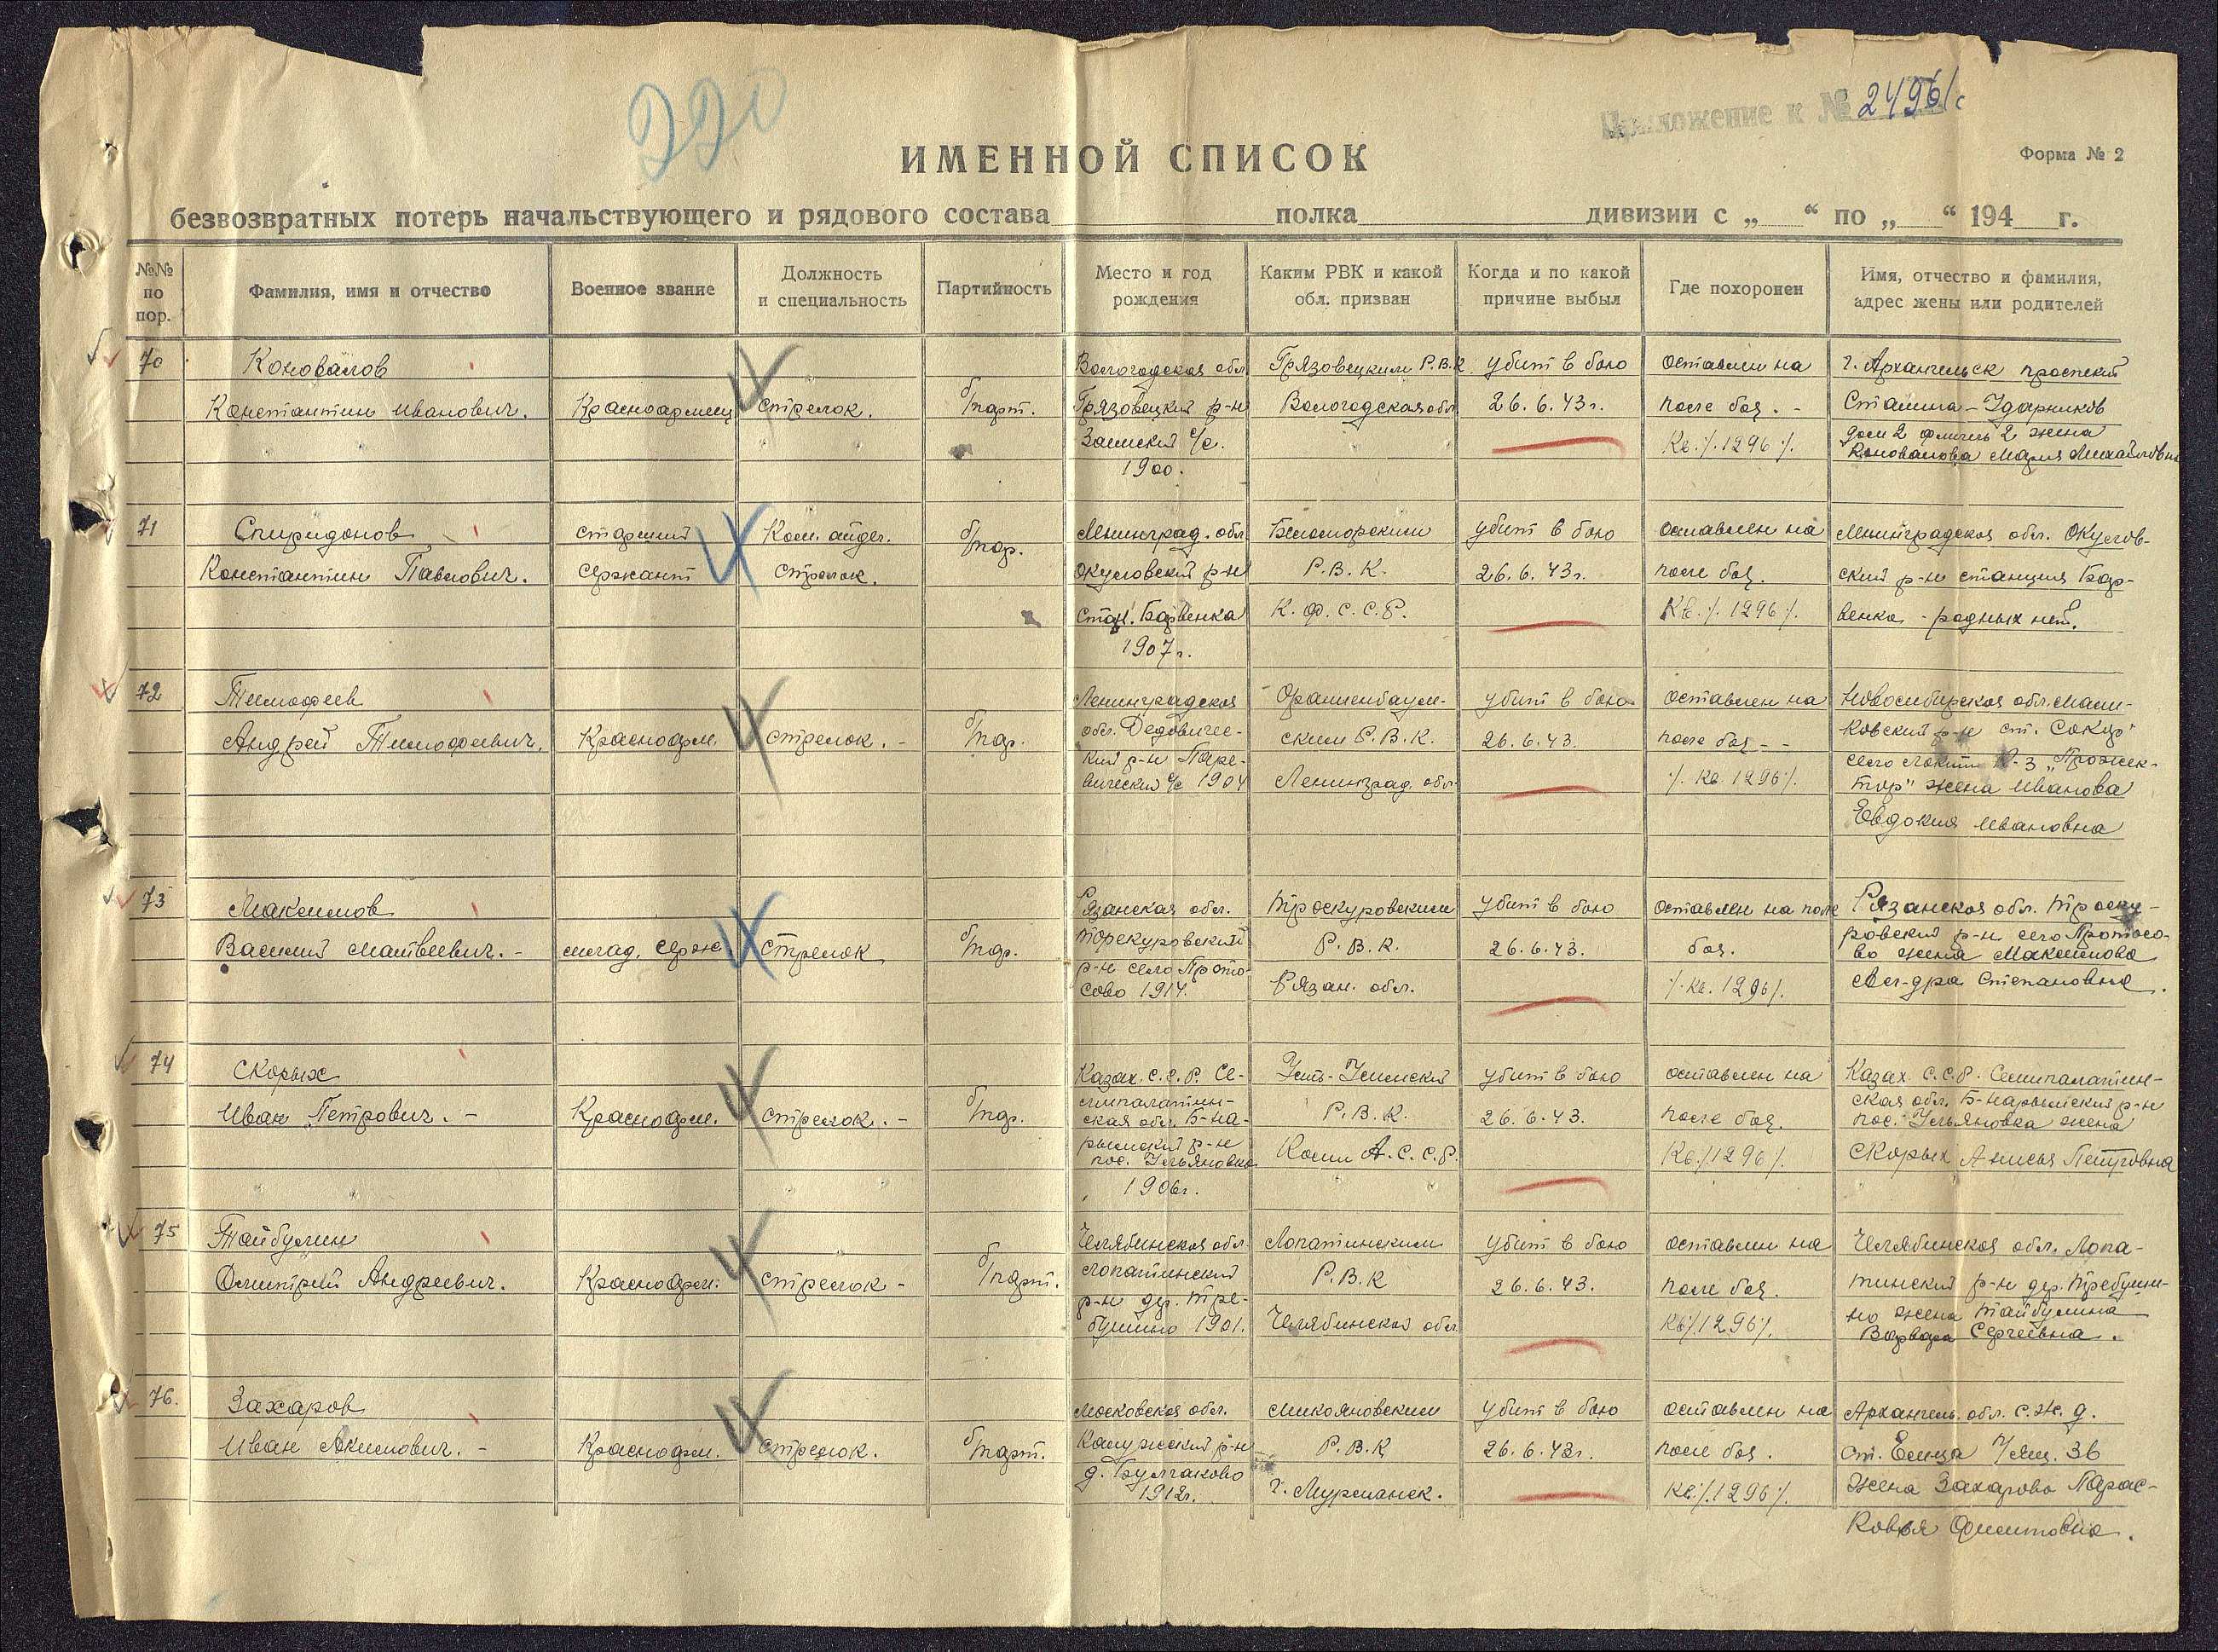 220
Приложение к № 2496/с
ИМЕННОЙ СПИСОК
Форма № 2
безвозвратных потерь начальствующего и рядового состава полка дивизии с „ “ по „ “ 194 г.
№№ по пор.
Фамилия, имя и отчество
Военное звание
Должность и специальность
Партийность
Место и год рождения
Каким РВК и какой обл. призван
Когда и по какой причине выбыл
Где похоронен
Имя, отчество и фамилия, адрес жены или родителей
70
Коновалов
Константин Иванович.
Красноармеец
стрелок.
б/парт.
Вологодская обл
Грязовецкий р-н
Заемский с/с.
1900.
Грязовецким Р.В.К.
Вологодская обл
убит в бою
26.6.43г.
оставлен на
поле боя. -
Кв./.1296/.
г. Архангельск проспект
Сталина-Ударников
дом 2 флигель 2 жена
Коновалова Мария Михайловна
71
Спиридонов
Константин Павлович.
старший
сержант
Ком. отдел.
стрелок.
б/пар.
Ленинград. обл
Окуловский р-н
стан. Борвенка
1907г.
Беломорским
Р.В.К.
К.Ф.С.С.Р.
убит в бою
26.6.43г.
оставлен на
поле боя.
Кв./.1296/.
Ленинградская обл. Окулов-
ский р-н станция Бор-
венка - родных нет.
72
Тимофеев
Андрей Тимофеевич.
Красноарм.
стрелок. -
б/пар.
Ленинградская
обл. Дедовичес-
кий р-н Паре-
вический с/с 1904
Ораниенбаум-
ским Р.В.К.
Ленинград. обл.
убит в бою
26.6.43.
оставлен на
поле боя - -
/. Кв. 1296/.
Новосибирская обл. Маш-
ковский р-н ст. Сокур
село К-з „Прожек-
тор" жена Иванова
Евдокия Ивановна
73
Максимов
Василий Матвеевич. -
млад. серж
стрелок
б/пар.
Рязанская обл.
Торекуровский
р-н село Прото-
сово 1914.
Троскуровским
Р.В.К.
Рязан. обл.
убит в бою
26.6.43.
оставлен на поле
боя.
/. Кв. 1296/.
Рязанская обл. Троску-
ровский р-н село Протосо-
во жена Максимова
Ал-дра Степановна.
74
Скорых
Иван Петрович. -
Красноарм.
стрелок. -
б/пар.
Казах. С.С.Р. Се-
мипалатин-
ская обл. Б-На-
рымский р-н
пос. Ульяновка
1906г.
Усть-Усинский
Р.В.К.
Коми А.С.С.Р.
убит в бою
26.6.43.
оставлен на
поле боя.
Кв./1296/.
Казах. С.С.Р. Семипалатин-
ская обл. Б-Нарымский р-н
пос. Ульяновка жена
Скорых Анисья Петровна
75
Тайбулин
Дмитрий Андреевич.
Красноарм.
стрелок -
б/парт.
Челябинская обл
Лопатинский
р-н дер. Тре-
бушино 1901.
Лопатинским
Р.В.К
Челябинская обл
убит в бою
26.6.43.
оставлен на
поле боя.
Кв/1296/.
Челябинская обл. Лопа-
тинский р-н дер. Требуши-
но жена Тайбулина
Варвара Сергеевна.
76.
Захаров
Иван Акимович. -
Красноарм.
стрелок.
б/парт.
Московская обл.
Калужский р-н
д. Булгаково
1912г.
Микояновским
Р.В.К
г. Мурманск.
убит в бою
26.6.43г.
оставлен на
поле боя.
Кв./.1296/.
Архангель. обл. С.Ж.д.
ст. Емца п/ящ. 36
жена Захарова Парас-
ковья Филипповна.